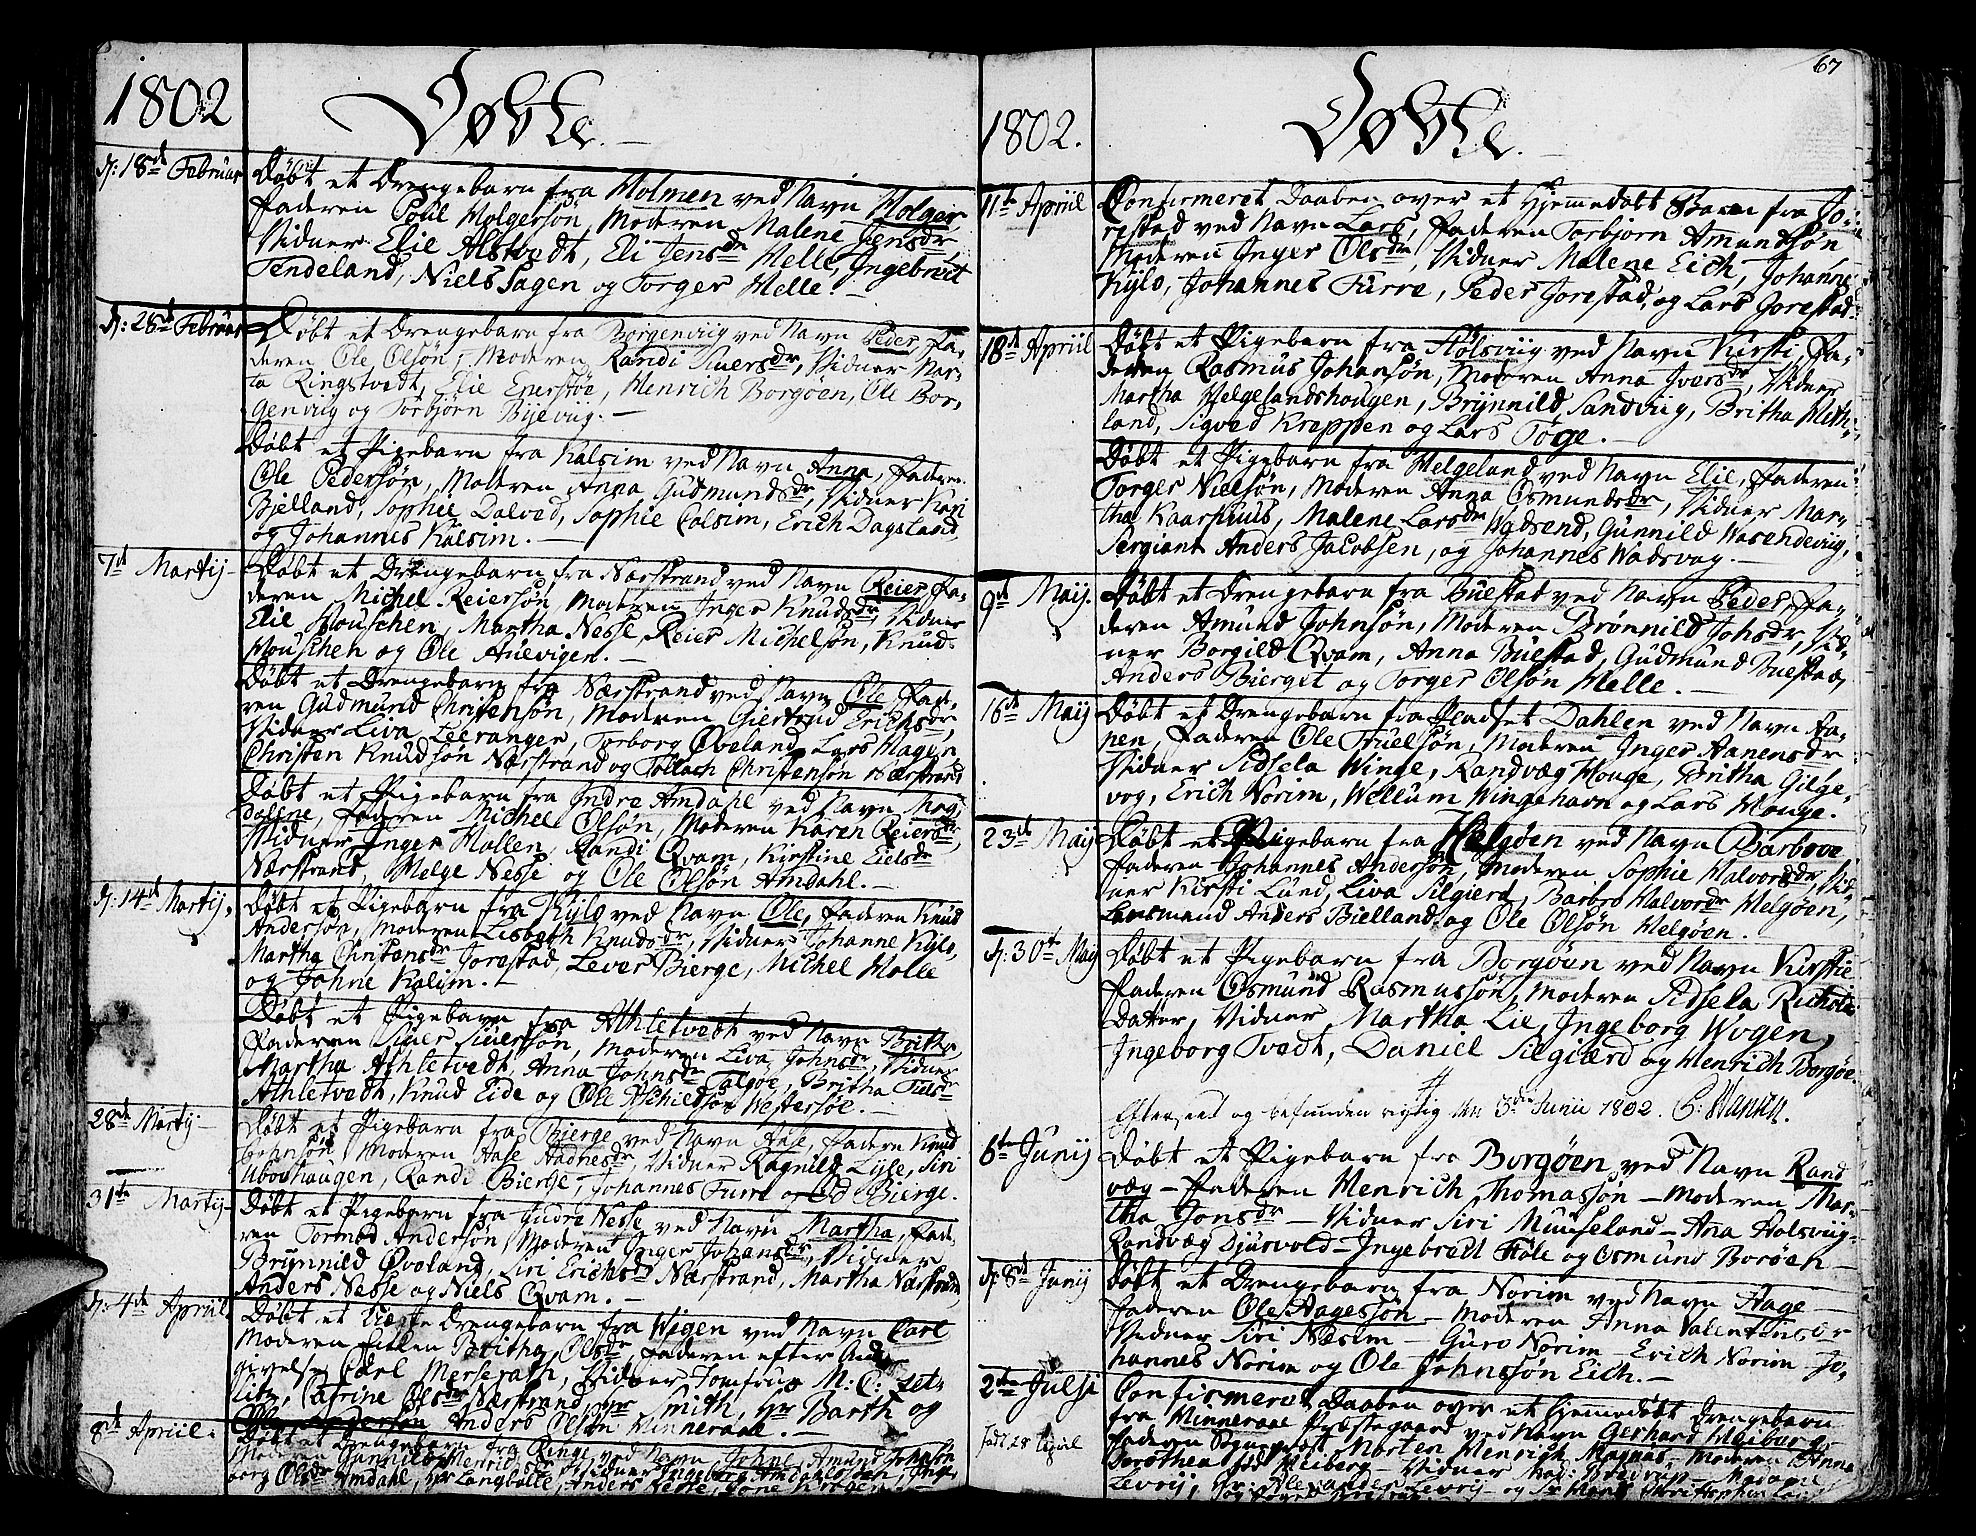 1802
Døbte.
d: 18de Februar
Døbt et Drengebarn fra Holmen ved Navn Holger,
Faderen Poul Holgersøn, Moderen Malene Jensdr,
Vidner Elie Alstvedt, Eli Jensdr Helle, Ingebret
Tendeland, Niels Sagen og Torger Helle.
d: 28de Februar
Døbt et Drengebarn fra Borgenviig ved Navn Peder, Fa-
deren Ole Olsøn, Moderen Randi Siversdr, Vidner Mar-
ta Ringstvedt, Elie, Henrich Borgøen, Ole Bor-
genviig og Torbjørn Byeviig.
Døbt et Pigebarn fra Kalsim ved Navn Anna, Faderen
Ole Pedersøn, Moderen Anna Gudmundsdr, Vidner Kari
Bjelland, Sophie Dalved, Sophie Calsim, Erich Dagsland
og Johannes Kalsim.
7de Martij
Døbt et Drengebarn fra Nærstrand ved Navn Reier, Fa-
deren Michel Reiersøn, Moderen Inger Knudsdr, Vidner
Elie Houschen, Martha Nesse, Reier Michelsøn, Knud
Houschen og Ole Auevigen.
Døbt et Drengebarn fra Nærstrand ved Navn Ole, Fade-
ren Gudmund Christensøn, Moderen Giertrud Erichsdr,
Vidner Liva Leeranger, Torborg Øveland, Lars Hagen
Christen Knudsøn Nærstrand og Tollach Christensøn Nærstrand
Døbt et Pigebarn fra Indre Amdahl ved Navn Mag-
dalene, Faderen Michel Olsøn, Moderen Karen Reiersdr,
Vidner Inger Hallen, Randi Qvam, Kirstine Eielsdr
Nærstrand, Helge Nesse og Ole Olsøn Amdahl.
d: 14de Martij,
Døbt et Pigebarn fra Kyld ved Navn Ole, Faderen Knud
Andersøn, Moderen Lisbeth Knudsdr, Vidner Johanne Kyld,
Martha Christensdr Jorestad, Lever Bierge, Michel Holle
og Johne Kalsim.
Døbt et Pigebarn fra Athletvedt ved Navn Britha
Faderen Siver Siversøn, Moderen Liva Johnsdr, Vidner
Martha Athletvedt, Anna Johnsdr Talgøe, Britha
Athletvedt, Knud Eide og Ole Westersøe.
28de Martij
Døbt et Pigebarn fra Bierge ved Navn Aase, Fadern Knud
Johnsøn, Moderen Aase Aadnesdr, Vidner Ragnild Lyse, Siri
Randi Bierge, Johannes Furre og Od Bierge.
31te Martij
Døbt et Pigebarn fra Indre Nesse ved Navn Martha, Fade-
ren Tormod Andersøn, Moderen Inger Johansdr, Vidner
Brynnild Øveland, Siri Erichsdr Nærstrand, Martha Nærstrand,
Anders Nesse og Niels Qvam.
d: 4de Apriil
Døbt et Drengebarn fra Wigen ved Navn Carl
Moderen Britha Olsdr, Faderen efter And-
givelse Carl Meserath, Vidner Jomfrue M: C:
Catrine Olsdr Nærstrand, Hr Smith, Hr Barth og
Anders Olsøn Hinneraae.
8de Apriil.
Døbt et Drengebarn fra Ringe ved Navn Johne, Amund Johnsøn
Moderen Gunnild Henrichsdr, Vidner Ingeborg Amdahl
borg Olsdr Amdahl, Hr Langballe, Anders Nesse,
67
1802.
Døbte.
11te Apriil
Confirmeret Daaben over et Hjemedøbt Barn fra Jo-
restad ved Navn Lars, Faderen Torbjørn Amundsøn
Moderen Inger Olsdr, Vidner Malene Eich, Johanne
Kyld, Johannes Furre, Peder Jorestad, og Lars Jorestad.
18de Apriil
Døbt et Pigebarn fra Holsviig ved Navn Kirsti, Fa-
deren Rasmus Johansøn, Moderen Anna Iversdr, Vidner
Martha Helgelandshougen, Brynnild Sandviig, Britha
land, Sigved Krappen og Lars Tøge.
Døbt et Pigebarn fra Helgeland ved Navn Elie, Faderen
Torger Nielsøn, Moderen Anna Osmundsdr, Vidner Mar-
tha Kaarhuus, Malene Larsdr Wadsend, Gunnild Wasendeviig,
Sergiant Anders Jacobsen, og Johannes Wadsvag.
9de Maij.
Døbt et Drengebarn fra Buestad ved Navn Peder, Fa-
deren Amund Johnsøn, Moderen Brønnild Johsdr, Vid-
ner Borgild Qvam, Anna Buestad, Gudmund Buestad,
Anders Bierget og Torger Olsøn Helle.
16de Maij
Døbt et Drengebarn fra Pladset Dahlen ved Navn
Faderen Ole Truelsøn, Moderen Inger Aanensdr
Vidner Sidsela Winge, Randvæg Houge, Britha Gilge-
vog, Erich Norim, Wellum Wingehavn og Lars Houge.
23de Maij
Døbt et Pigebarn fra Helgøen ved Navn Barbroe
Faderen Johannes Andersøn, Moderen Sophie Halvorsdr, Vid-
ner Kirsti Lund, Liva Silgierd, Barbro Halvorsdr Helgøen,
Lensmand Anders Bielland og Ole Olsøn Helgøen.
d: 30te May
Døbt et Pigebarn fra Borgøen ved Navn Kirstie
Faderen Osmund Rasmussøn, Moderen Sidsela Richols
Datter, Vidner Martha Lie, Ingeborg Wogen,
Ingeborg Tvedt, Daniel Silgiærd og Henrich Borgøe.
Efterseet og befunden rigtig den 3die Junii 1802.
6te Junij
Døbt et Pigebarn fra Borgøen ved Navn Rand
væg - Faderen Henrich Thomassøn - Moderen Mar-
tha Jonsdr - Vidner Siri Munseland - Ana Holsviig -
Randvæg Djursvold - Ingebred Høle og Osmund Borøen -
d. 8de Junij
Døbt et Drengebarn fra Norim ved Navn Hage -
Faderen Ole Hagessøn - Moderen Anna Valentinsdr
Vidner Siri Nædsim - Guro Norim - Erich Norim - Jo-
hannes Norim og Ole Johnssøn Eich.
2den Julji
født 28 April
Confirmeret Daaben over et hjemedøbt Drengebarn
fra Hinneraae Præstegaard ved Navn Gerhard Heiberg
Faderen Morten Henrich Magnus, Moderen Anna
Dorothea fød Heiberg - Vidner Mad: - Madame
Levrij, Hr: Alexander Levrij - og